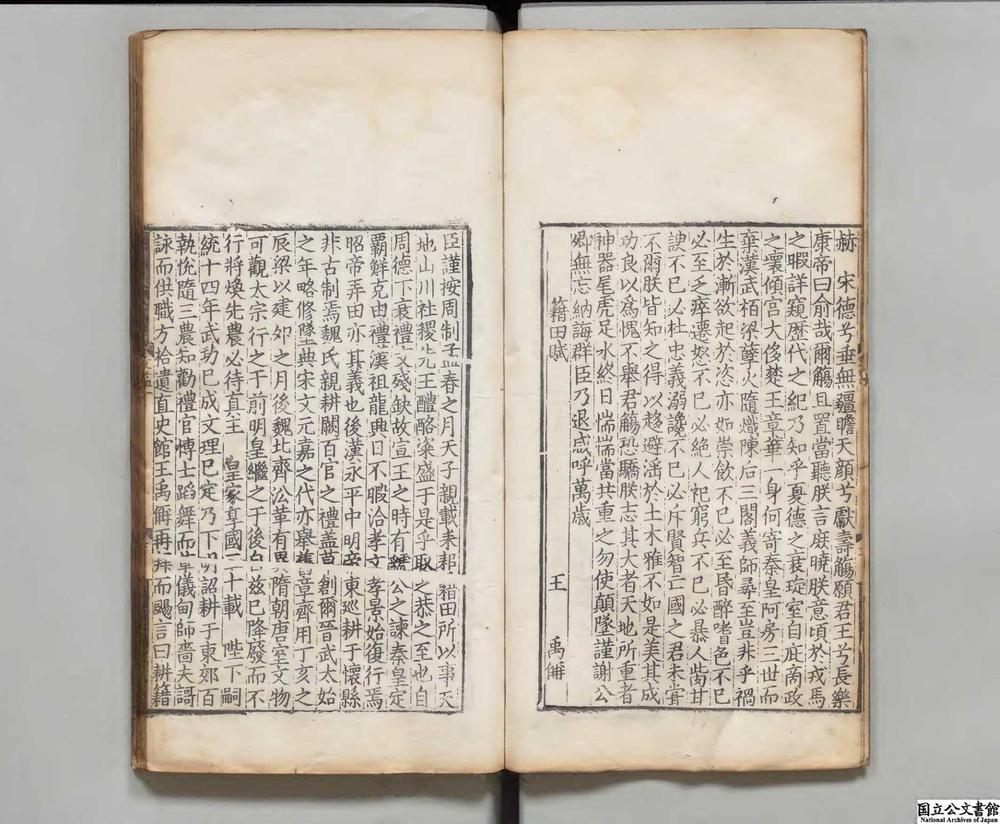 赫　宋德兮垂無疆瞻天顔兮獻壽觴願君王兮長樂
康帝曰俞哉爾觴且置當聽朕言庶曉朕意頃於戎馬
之暇詳窺歷代之紀乃知乎夏德之衰琁室自庇啇政
之壞傾宮大侈楚王章華一身何寄秦皇阿房三世而
棄漢武栢梁孽火隨熾陳后三閣義師尋至豈非乎禍
生於漸欲起於恣亦如崇飲不已必至昏醉嗜色不已
必至乏瘁遷怒不已必絕人祀窮兵不已必暴人胔甘
諛不已必杜忠義溺讒不已必斥賢智二國之君未寤
不爾朕皆知之得以趍避滿於土木雅不如是美其成
功良以爲愧不舉君觴恐驕朕志其大者天地所重者
神器尾虎足水終日惴惴當共重之勿使顛墜謹謝公
卿無忘納誨群臣乃退咸呼萬歲
籍田賦　王　禹偁
臣謹按周制孟春之月天子親載耒耜　籍田所以事天
地山川社稷先王醴酪粢盛于是乎取之恭之至也自
周德下衰禮文殘缺故宣王之時有虢公之諫秦皇定
霸鮮克由禮漢祖龍興日不暇洽孝文孝景始復行焉
昭帝弄田亦其義也後漢永平中明帝東巡耕于懷縣
非古制焉魏氏親耕闕百官之禮蓋草創爾晉武太始
之年略修墜典宋文元嘉之代亦舉舊章齊用丁亥之
辰梁以建卯之月後魏北齊㳂革有異隋朝唐室文物
可觀太宗行之于前明皇繼之于後自兹已降廢而不
行將煥先農必待直王　皇家享國三十載　陛下嗣
統十四年武功已成文理已定乃下明詔耕于東郊百
執恱隨三農知勸禮官博士蹈舞而草儀甸師嗇夫謌
詠而供職方拾遺直史館王禹偁再拜而颺言曰耕籍
国立公文書館
National Archives of Japan